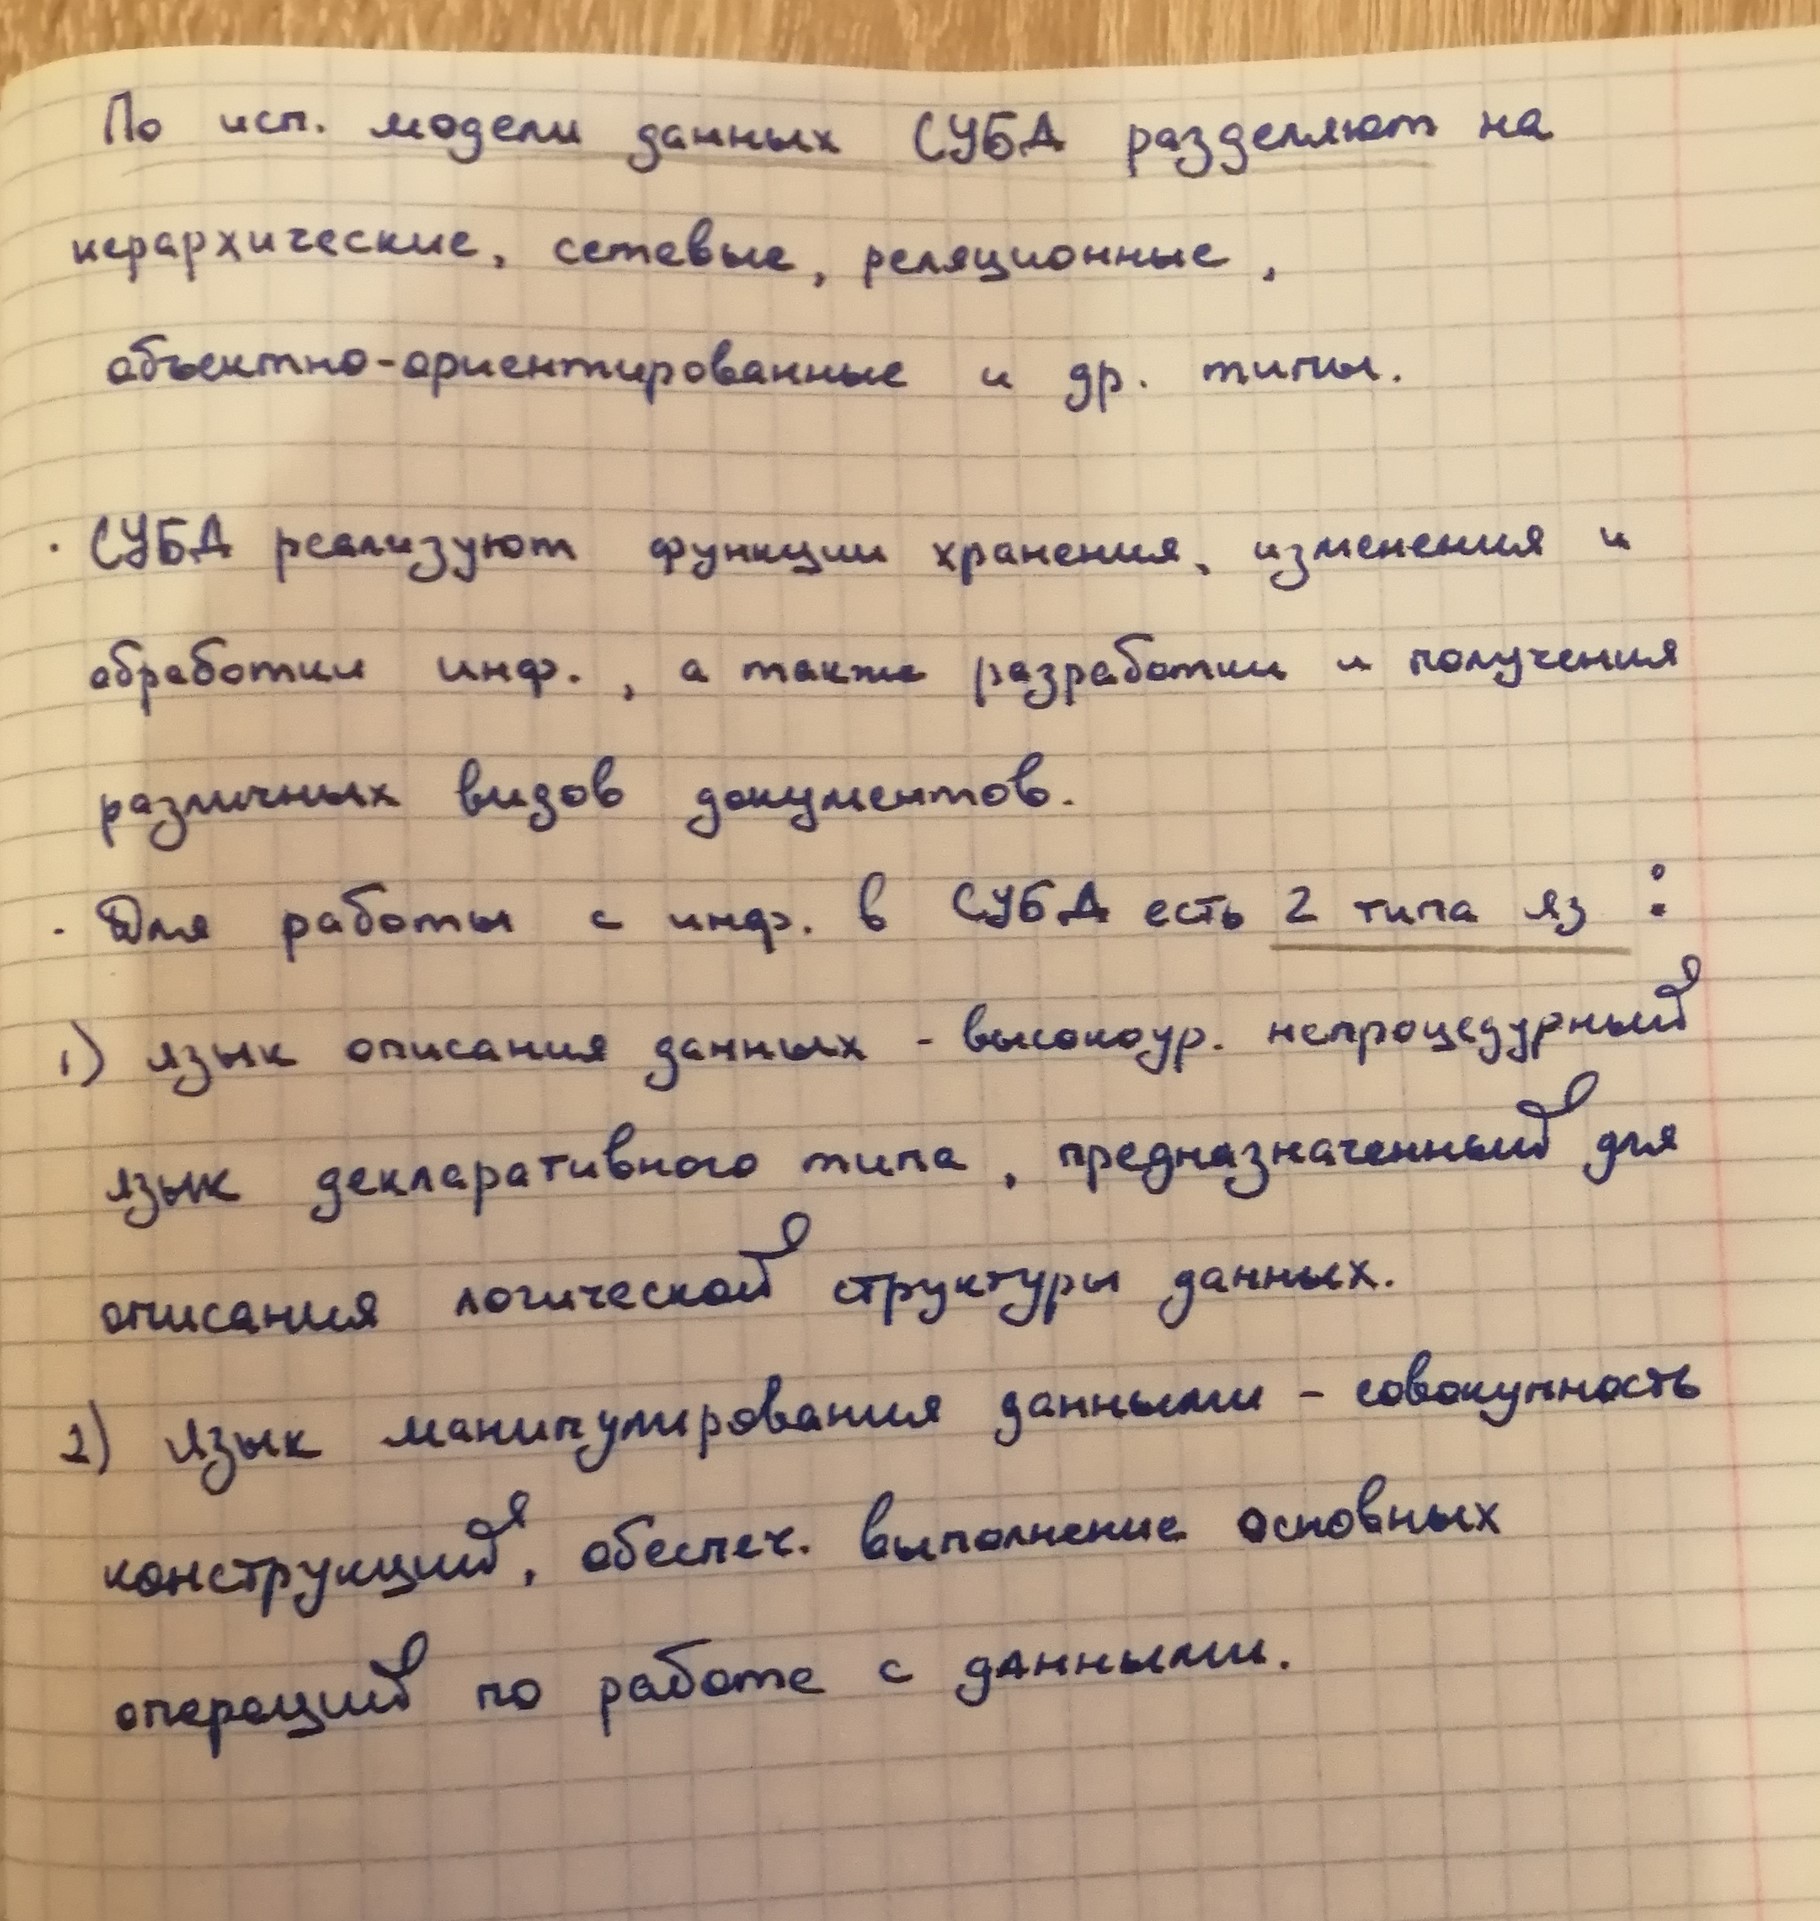 По исп. модели данных СУБД разделяют на
иерархические, сетевые, реляционные,
объектно-ориентированные и др. типы.
· СУБД реализуют функции хранения, изменения и
обработки инф., а также разработки и получения
различных видов документов.
· Для работы с инф. в СУБД есть 2 типа яз :
1) язык описания данных - высокоур. непроцедурный
язык декларативного типа, предназначенный для
описания логической структуры данных.
2) язык манипулирования данными - совокупность
конструкций, обеспеч. выполнение основных
операций по работе с данными.